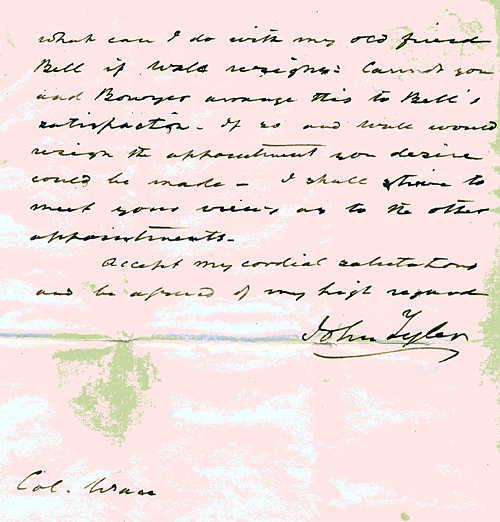 what can I do with my old friend
Bell if Wall resigns? Cannot you
and Bowyer arrange this to Bell's
satisfaction - If so and Wall would
resign the appointment you desire
could be made - I shall strive to
meet your views as to the other
appointments -
Accept my cordial salutations
and be assured of my high regard
John Tyler
Col.